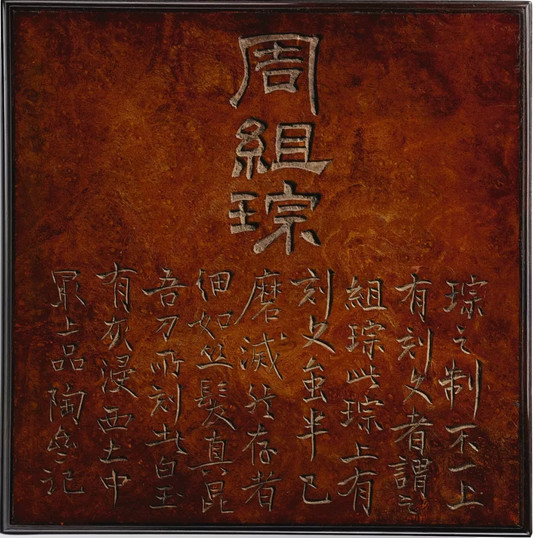 周組琮
琮之制不一上
有刻文者謂之
組琮此琮上有
刻文虽半已
磨滅然存者
細如丝髮真昆
吾刀所刻此白玉
有灰浸西土中
最上品陶齋記